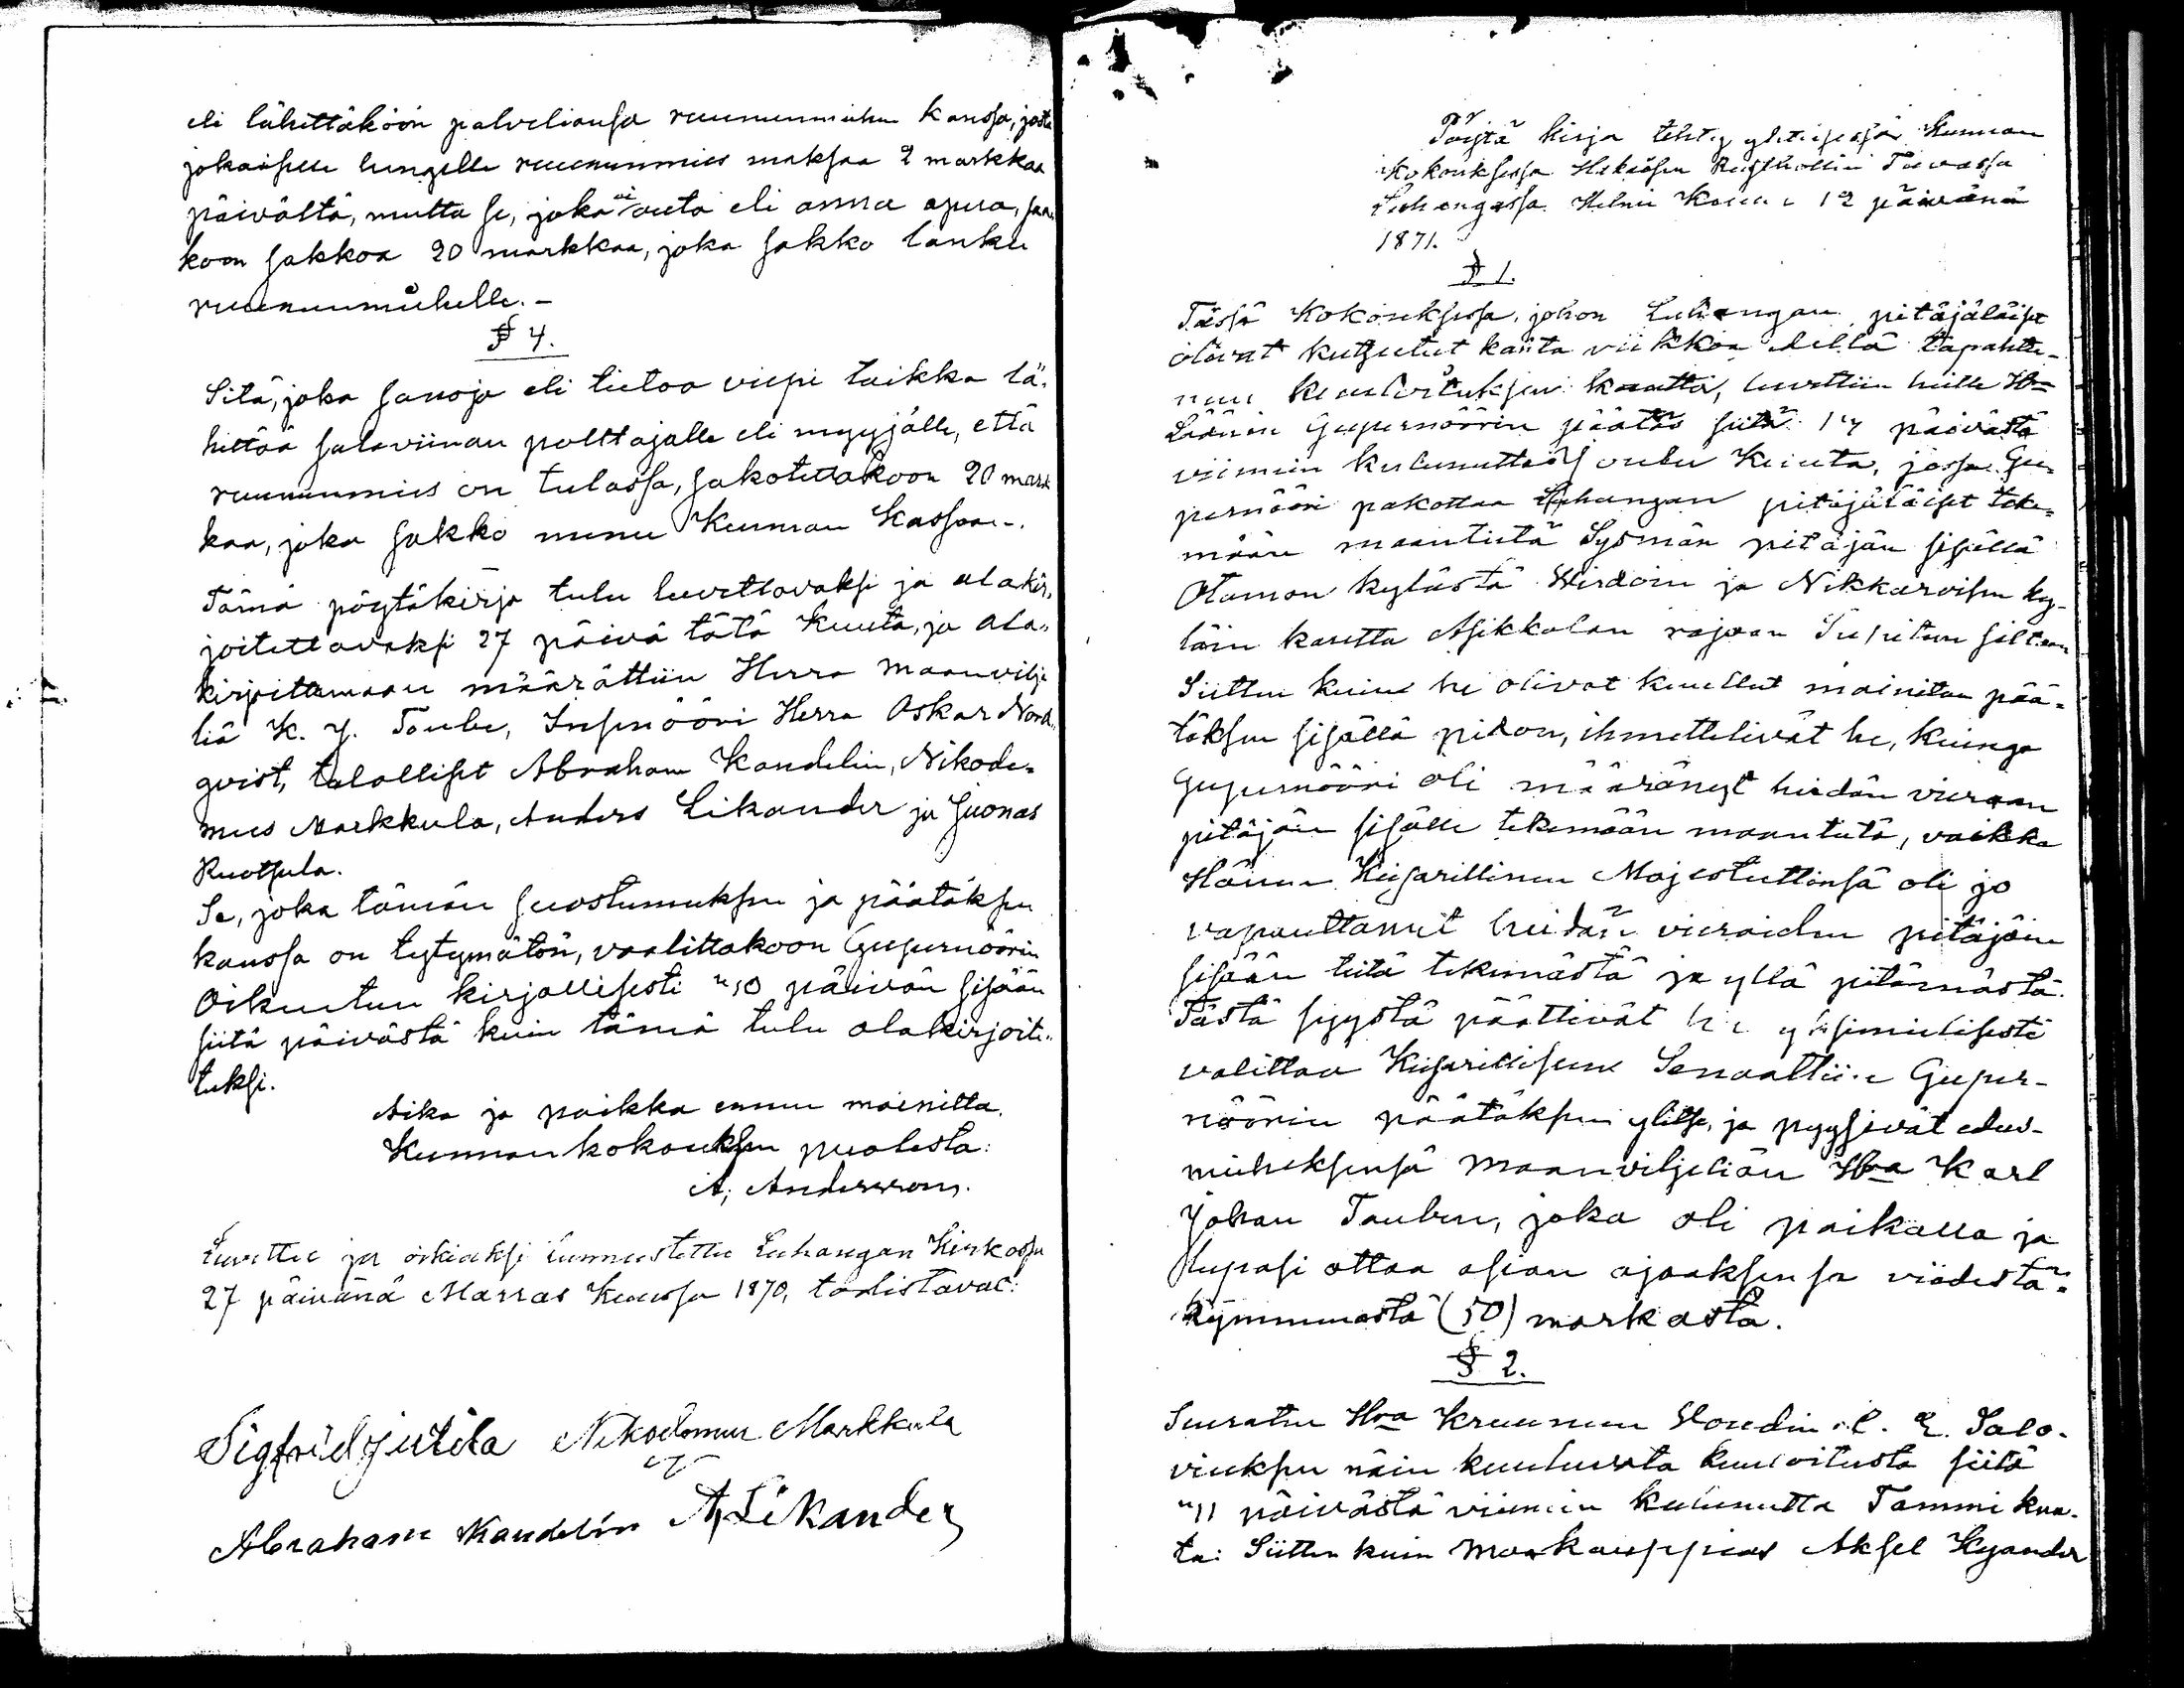 eli lähettäköön palveliansa ruununmiehen kanssa, josta
jokaisesta hengelle ruununmies maksaa 2 markkaa
päivältä, mutta se, joka ei auta eli anna apua, saa=
koon sakkoa 20 markkaa, joka sakko lankee
ruununmiehelle. –
§ 4.
Sitä, joka sanoja eli tietoa viepi taikka lä=
hettää salaviinan polttajalle eli myyjälle, että
ruununmies on tulossa, sakotettakoon 20 mark
kaa, joka sakko menee Kunnan Kassaan. –
Tämä pöytäkirja tulee luvettavaksi ja alakir=
joitettavaksi 27 päivä tätä Kuuta, ja ala=
kirjoittamaan määrättiin Herra Maanvilje
liä K. J. Taube, Insinööri Herra Oskar Nord=
qvist, talolliset Abraham Kandelin, Nikode=
mus Markkula, Anders Likander ja Juonas
Ruotsula.
Se, joka tämän suostumuksen ja päätöksen
kanssa on tytymätön, vaalittakoon Gupernöörin
Oikeuteen kirjallisesti "30 päivän sisään
siitä päivästä kuin tämä tulee alakirjoite=
tuksi.
Aika ja paikka ennen mainitta.
Kunnankokouksen puolesta:
A. Andersson.
Luvettu ja oikiaksi tunnustettu Luhangan Kirkossa
27 päivänä Marras Kuussa 1870, todistavat:
Sigfrid Jutila Nikodemus Markkula
Abraham Kandelin A, Likander
Pöytä kirja tehty ylimääräisessä Kunnan
Kokouksessa Hakalsen Rusthollin Tuvassa
Luhangassa Helmi Kuun 12 päivänä
1871.
§ 1.
Tässä Kokouksessa, johon Luhangan pitäjäläiset
olivat kutsutut kahta viikkoa edellä tapahtu=
neen kuulutuksen kautta, luettiin heille H:n
Läänin Gupernöörin päätös siitä 14 päivästä
viimein kulunutta Joulu Kuuta, jossa Gu=
pernööri pakottaa Luhangan pitäjäläiset teke=
mään maantietä Sysmän pitäjän sisällä
Otamon kylästä Wirdoin ja Nikkaroisen ky=
läin kautta Asikkalan rajaan Pulputun siltaan
Siitten kuin he olivat kuullut mainitun pää=
töksen sisällä pidon, ihmettelivät he, kuinga
Gupernööri oli määrännyt heidän vieraan
pitäjän sisälle tekemään maantietä, vaikka
Hänen Keisarillinen Majesteettinsä oli jo
vapauttanut heidän vieraiden pitäjäin
sisään tietä tekemästä ja yllä pitämästä.
Tästä syystä päättivät he yksimielisesti
valittaa Keisarilliseen Senaattiin Guper=
nöörin päätöksen ylitse, ja pyysivät edus=
mieheksensä Maanviljeliän Hra Karl
Johan Tauben, joka oli paikalla ja
lupasi ottaa asian ajaaksensa viidestä=
kymmenestä (50) markasta.
§ 2.
Seuratun Hra Kruunun Voudin A. E. Salo=
viuksen näin kuuluvata kuuloitusta siitä
"11 päivästä viimein kulunutta Tammi kuu=
ta: Siitten kuin Maakauppias Aksel Kyander